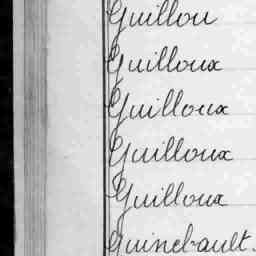 Guillou
Guilloux
Guilloux
Guilloux
Guilloux
Guinebault.